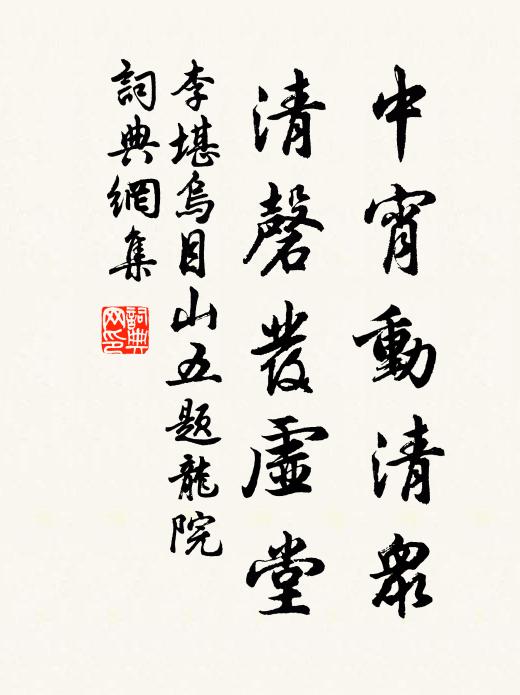 中宵動清衆
清磬發虛堂
李堪烏目山五題龍院
詞典網集
詞典网印